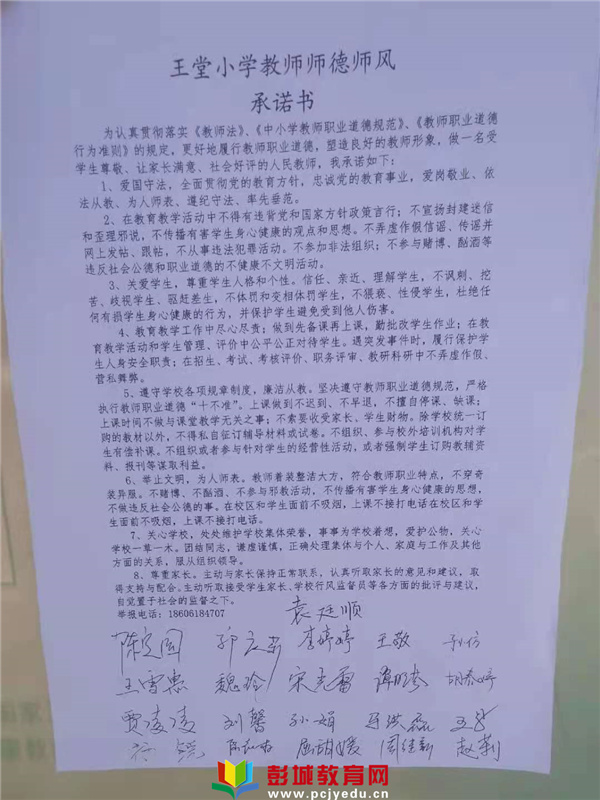 王堂小学教师师德师风
承诺书
为认真贯彻落实《教师法》、《中小学教师职业道德规范》、《教师职业道德
行为准则》的规定，更好地履行教师职业道德，塑造良好的教师形象，做一名受
学生尊敬、让家长满意、社会好评的人民教师，我承诺如下：
1、爱国守法，全面贯彻党的教育方针，忠诚党的教育事业，爱岗敬业、依
法从教、为人师表、遵纪守法、率先垂范。
2、在教育教学活动中不得有违背党和国家方针政策言行；不宣扬封建迷信
和歪理邪说，不传播有害学生身心健康的观点和思想。不弄虚作假信谣、传谣并
网上发帖、跟帖，不从事违法犯罪活动。不参加非法组织；不参与赌博、酗酒等
违反社会公德和职业道德的不健康不文明活动。
3、关爱学生，尊重学生人格和个性。信任、亲近、理解学生，不讽刺、挖
苦、歧视学生、驱赶差生，不体罚和变相体罚学生，不猥亵、性侵学生，杜绝任
何有损学生身心健康的行为，并保护学生避免受到他人伤害。
4、教育教学工作中尽心尽责；做到先备课再上课，勤批改学生作业；在教
育教学活动和学生管理、评价中公平公正对待学生。遇突发事件时，履行保护学
生人身安全职责；在招生、考试、考核评价、职务评审、教研科研中不弄虚作假、
营私舞弊。
5、遵守学校各项规章制度，廉洁从教。坚决遵守教师职业道德规范，严格
执行教师职业道德“十不准”。上课做到不迟到、不早退，不擅自停课、缺课；
上课时间不做与课堂教学无关之事；不索要收受家长、学生财物。除学校统一订
购的教材以外，不得私自征订辅导材料或试卷。不组织、参与校外培训机构对学
生有偿补课。不组织或者参与针对学生的经营性活动，或者强制学生订购教辅资
料、报刊等谋取利益。
6、举止文明，为人师表。教师着装整洁大方，符合教师职业特点，不穿奇
装异服。不赌博、不酗酒、不参与邪教活动，不传播有害学生身心健康的思想，
不做违反社会公德的事。在校区和学生面前不吸烟，上课不接打电话在校区和学
生面前不吸烟，上课不接打电话。
7、关心学校，处处维护学校集体荣誉，事事为学校着想，爱护公物，关心
学校一草一木。团结同志，谦虚谨慎，正确处理集体与个人、家庭与工作及其他
方面的关系，服从组织领导。
8、尊重家长。主动与家长保持正常联系，认真听取家长的意见和建议，取
得支持与配合。主动听取接受学生家长、学校行风监督员等各方面的批评与建议，
自觉置于社会的监督之下。
举报电话：18606184707
袁廷顺
李婷婷 王敬
王雪惠 魏玲
贾凌凌 刘馨 孙娟
赵莉
彭城教育网
www.pcjyedu.cn